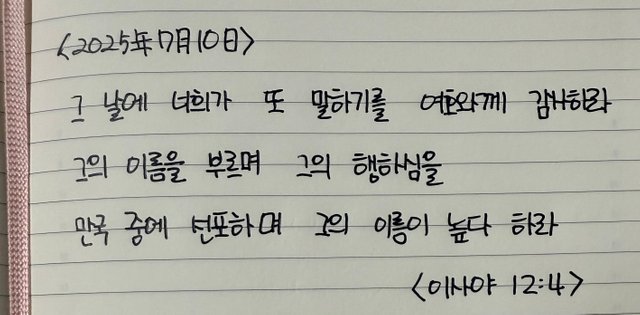 <2025年 7月 10日>
그 날에 너희가 또 말하기를 여호와께 감사하라
그의 이름을 부르며 그의 행하심을
만국 중에 선포하며 그의 이름이 높다 하라
<이사야 12:4>